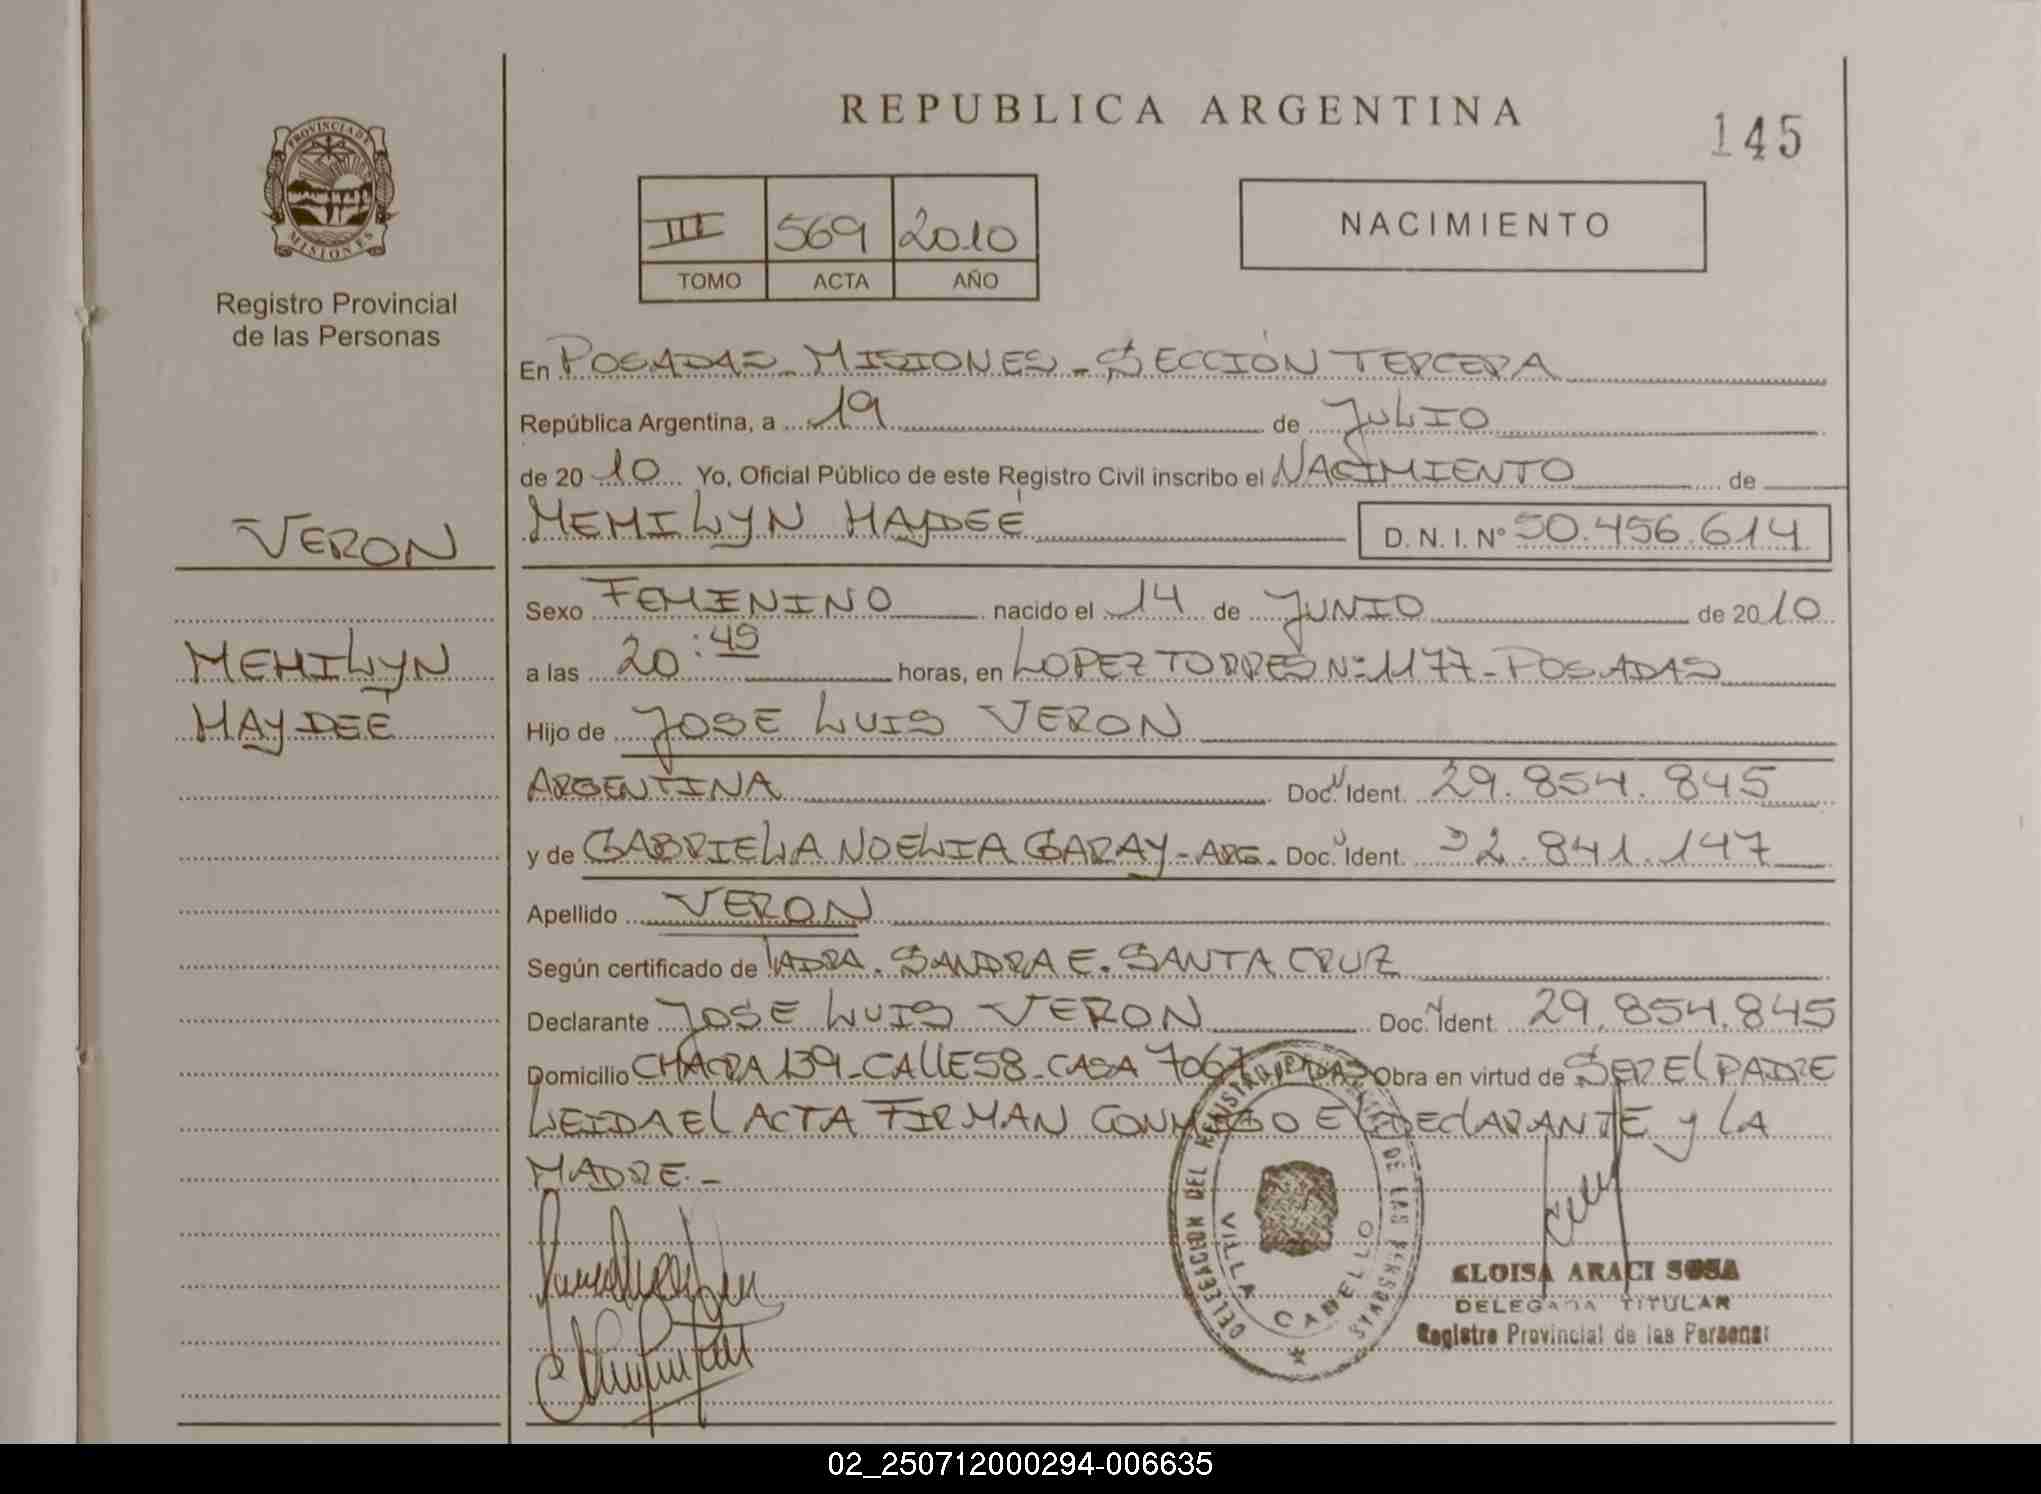 REPUBLICA ARGENTINA
145
PROVINCIA DE
MISIONES
Registro Provincial
de las Personas
III 569 2010
TOMO ACTA AÑO
NACIMIENTO
En POSADAS - MISIONES - SECCIÓN TERCERA
República Argentina, a 19 de JULIO
de 2010 Yo, Oficial Público de este Registro Civil inscribo el NACIMIENTO de
MEMILYN HAYDEÉ D. N. I. Nº 50.456.614
VERON
MEMILYN
HAYDEÉ
Sexo FEMENINO nacido el 14 de JUNIO de 2010
a las 20:45 horas, en LOPEZ TORRES Nº 1177 - POSADAS
Hijo de JOSE LUIS VERON
ARGENTINA Doc. Ident. 29.854.845
y de GABRIELA NOELIA GARAY - ARG. Doc. Ident. 32.841.147
Apellido VERON
Según certificado de SANDRA E. SANTA CRUZ
Declarante JOSE LUIS VERON Doc. Ident. 29.854.845
Domicilio CHACRA 139 - CALLE 58 - CASA 7067 PDAS Obra en virtud de SER EL PADRE
LEIDA EL ACTA FIRMAN CONMIGO EL DECLARANTE y LA
MADRE.-
DELEGACION DEL REGISTRO PROVINCIAL DE LAS PERSONAS
VILLA CABELLO
ELOISA ARACI SOSA
DELEGADA TITULAR
Registro Provincial de las Personas
02_250712000294-006635